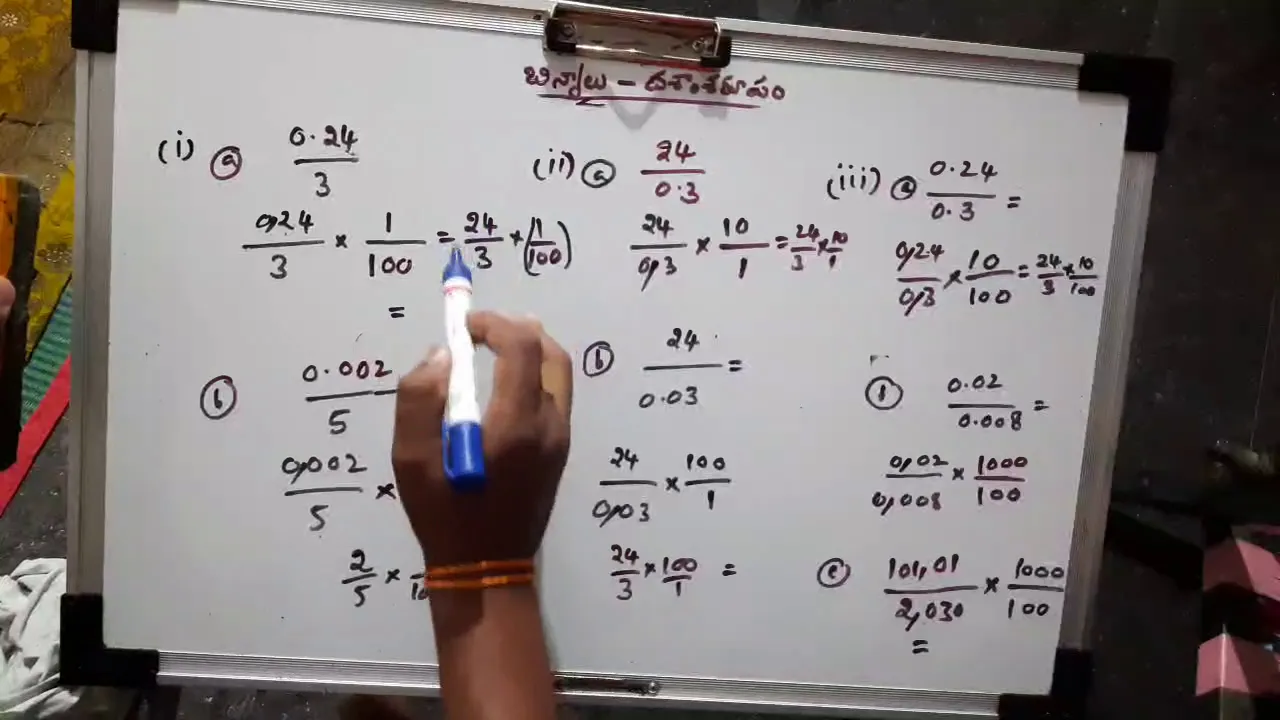 భిన్నాలు - దశాంశరూపం
(i) ⓐ 0.24/3
0,24/3 × 1/100 = 24/3 × (1/100)
=
ⓑ 0.002/5
0,002/5 ×
2/5 ×
(ii) ⓐ 24/0.3
24/0,3 × 10/1 = 24/3 × 10/1
ⓑ 24/0.03 =
24/0,03 × 100/1
24/3 × 100/1 =
(iii) ⓐ 0.24/0.3 =
0,24/0,3 × 10/100 = 24/3 × 10/100
ⓑ 0.02/0.008 =
0,02/0,008 × 1000/100
ⓒ 101,01/2,030 × 1000/100
=